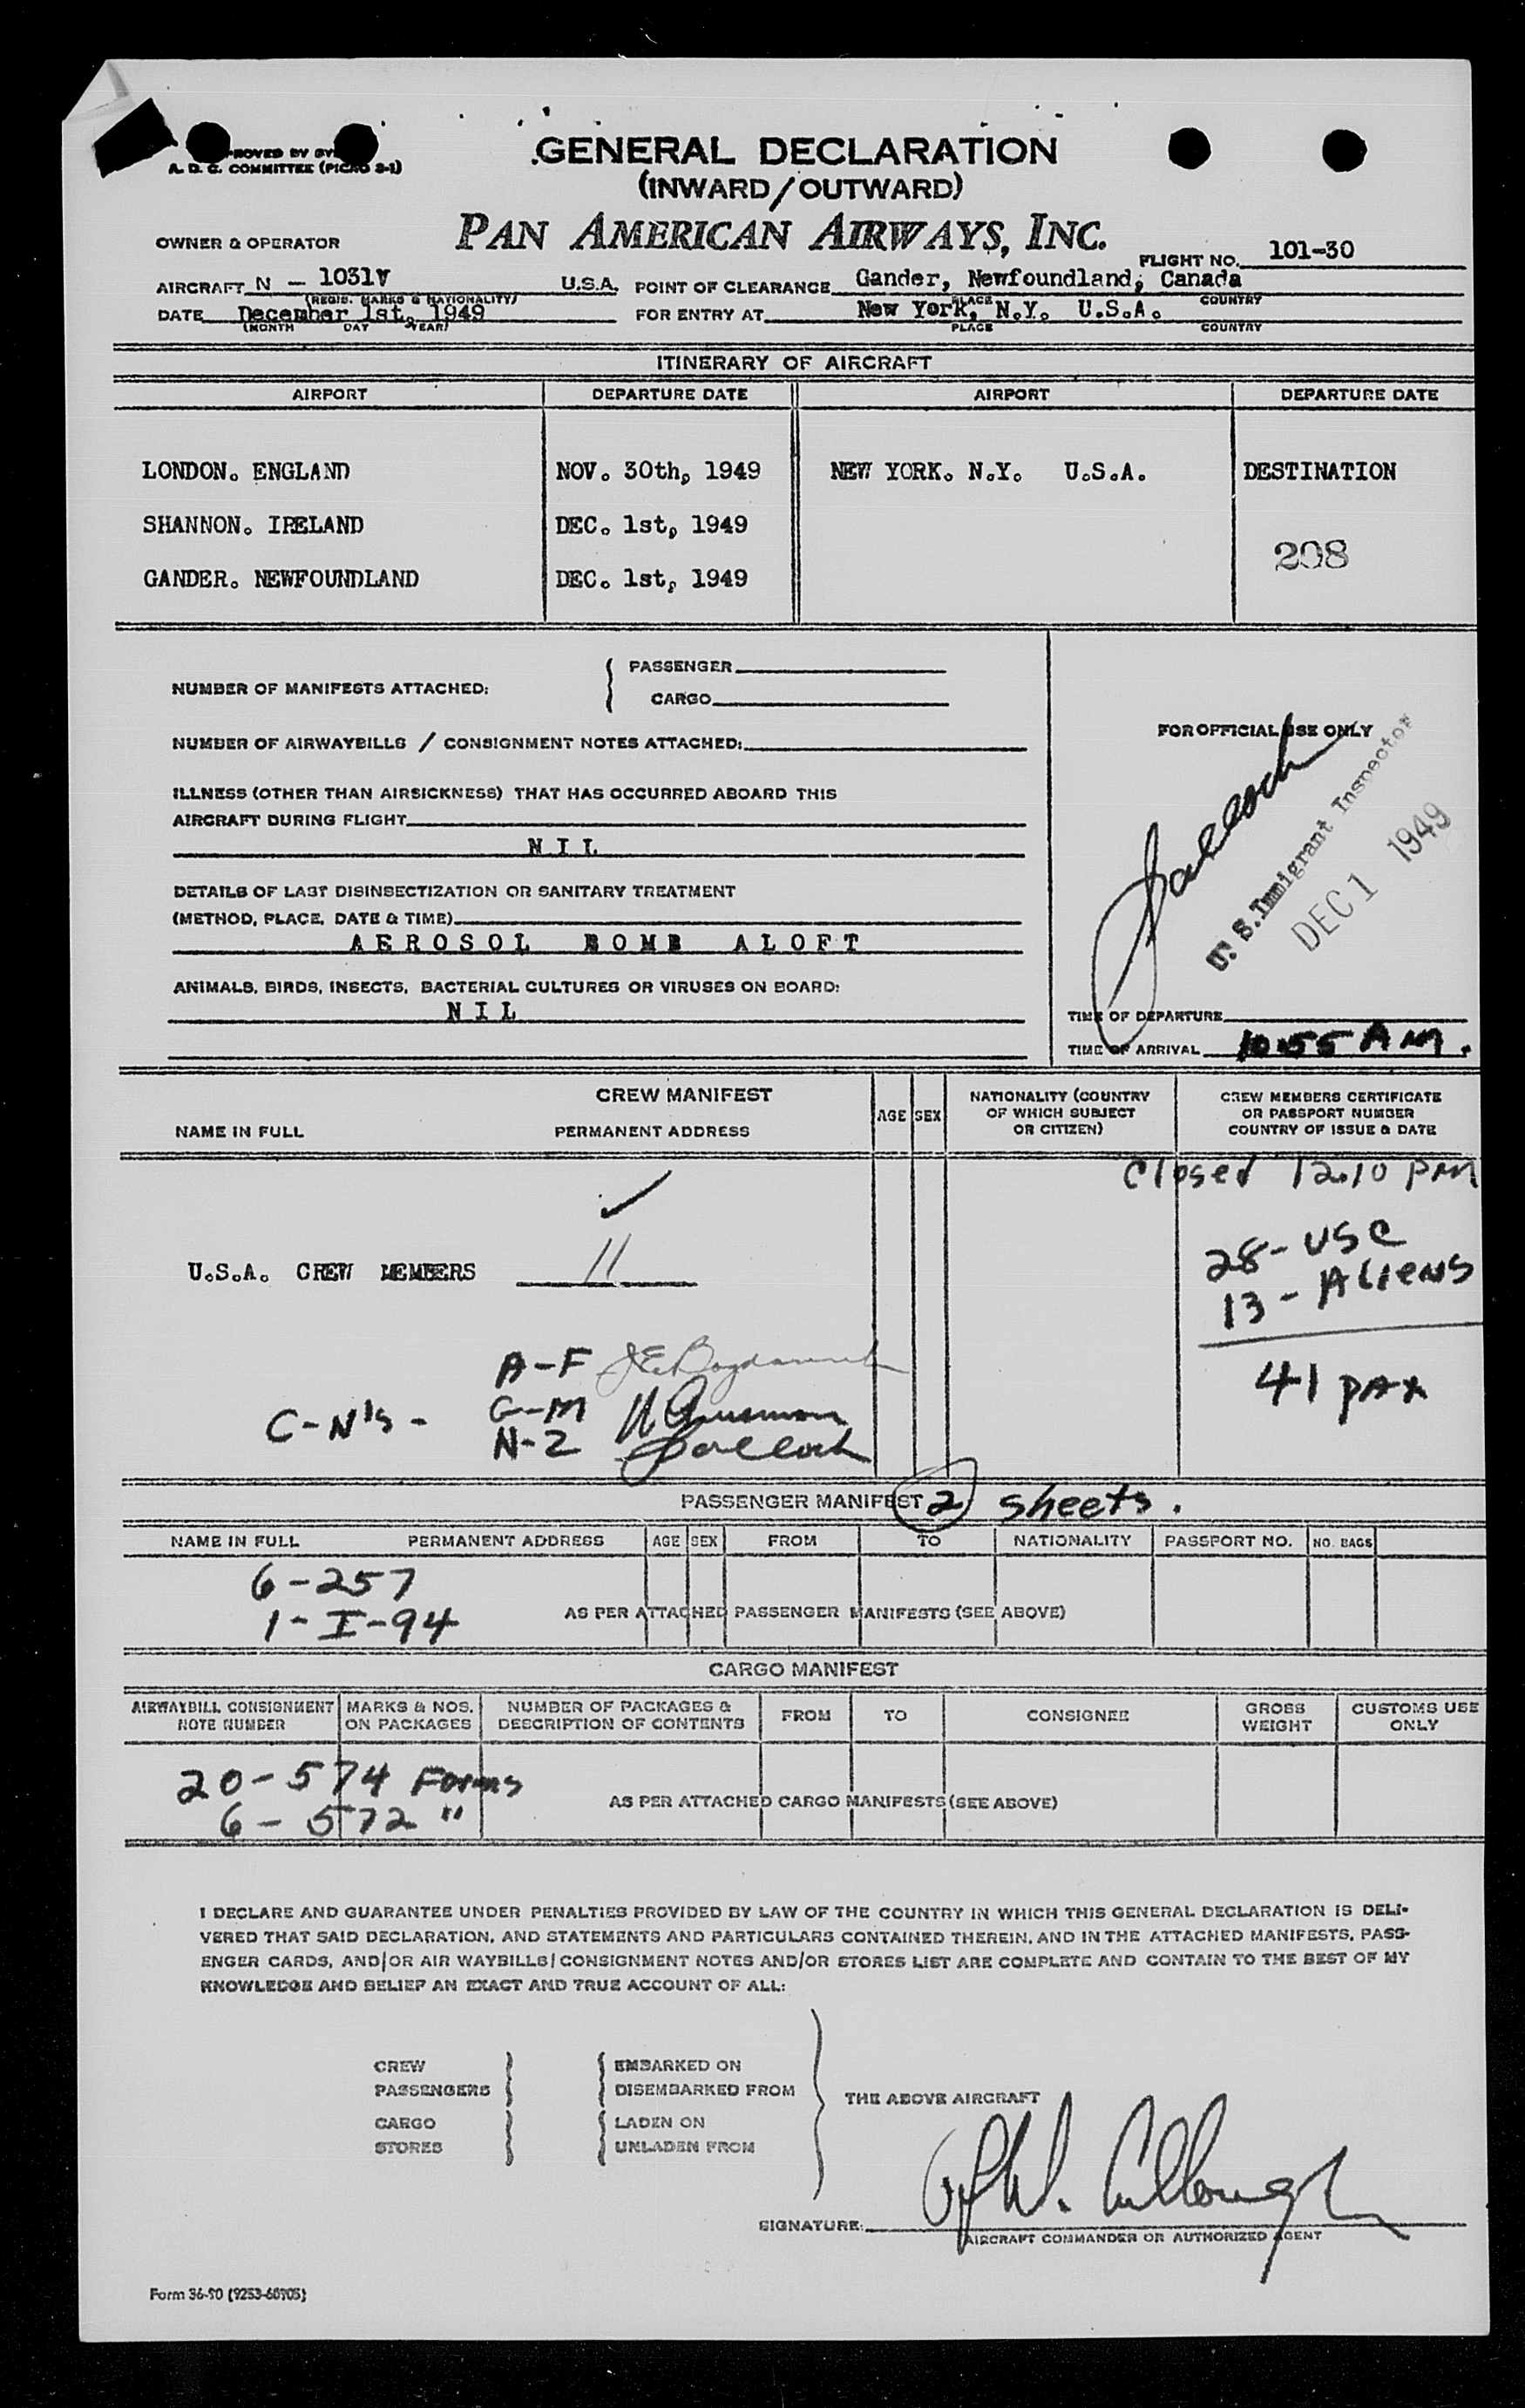 GENERAL DECLARATION
(INWARD/OUTWARD)
A. D. C. COMMITTEE (PICAO 3-1)
PAN AMERICAN AIRWAYS, INC.
OWNER & OPERATOR
FLIGHT NO. 101-30
AIRCRAFT N - 1031V U.S.A.
(REGIS. MARKS & NATIONALITY)
POINT OF CLEARANCE Gander, Newfoundland, Canada
PLACE COUNTRY
DATE December 1st, 1949
(MONTH DAY YEAR)
FOR ENTRY AT New York, N.Y. U.S.A.
PLACE COUNTRY
ITINERARY OF AIRCRAFT
AIRPORT DEPARTURE DATE AIRPORT DEPARTURE DATE
LONDON. ENGLAND NOV. 30th, 1949 NEW YORK. N.Y. U.S.A. DESTINATION
SHANNON. IRELAND DEC. 1st, 1949
208
GANDER. NEWFOUNDLAND DEC. 1st, 1949
NUMBER OF MANIFESTS ATTACHED:
PASSENGER
CARGO
NUMBER OF AIRWAYBILLS / CONSIGNMENT NOTES ATTACHED:
ILLNESS (OTHER THAN AIRSICKNESS) THAT HAS OCCURRED ABOARD THIS
AIRCRAFT DURING FLIGHT
NIL
DETAILS OF LAST DISINSECTIZATION OR SANITARY TREATMENT
(METHOD, PLACE, DATE & TIME)
AEROSOL BOMB ALOFT
ANIMALS, BIRDS, INSECTS, BACTERIAL CULTURES OR VIRUSES ON BOARD:
NIL
FOR OFFICIAL USE ONLY
U. S. Immigrant Inspector
DEC 1 1949
TIME OF DEPARTURE
TIME OF ARRIVAL 10:55 AM.
CREW MANIFEST
NAME IN FULL PERMANENT ADDRESS AGE SEX
NATIONALITY (COUNTRY
OF WHICH SUBJECT
OR CITIZEN)
CREW MEMBERS CERTIFICATE
OR PASSPORT NUMBER
COUNTRY OF ISSUE & DATE
Closed 12.10 PM
U.S.A. CREW MEMBERS 11
28 - USC
13 - Aliens
41 pax
C-N's -
A-F
G-M
N-Z
PASSENGER MANIFEST 2 sheets.
NAME IN FULL PERMANENT ADDRESS AGE SEX FROM TO NATIONALITY PASSPORT NO. NO. BAGS
6-257
1-I-94
AS PER ATTACHED PASSENGER MANIFESTS (SEE ABOVE)
CARGO MANIFEST
AIRWAYBILL CONSIGNMENT
NOTE NUMBER
MARKS & NOS.
ON PACKAGES
NUMBER OF PACKAGES &
DESCRIPTION OF CONTENTS
FROM TO CONSIGNEE
GROSS
WEIGHT
CUSTOMS USE
ONLY
20-574 Forms
6-572 "
AS PER ATTACHED CARGO MANIFESTS (SEE ABOVE)
I DECLARE AND GUARANTEE UNDER PENALTIES PROVIDED BY LAW OF THE COUNTRY IN WHICH THIS GENERAL DECLARATION IS DELI-
VERED THAT SAID DECLARATION, AND STATEMENTS AND PARTICULARS CONTAINED THEREIN, AND IN THE ATTACHED MANIFESTS, PASS-
ENGER CARDS, AND/OR AIR WAYBILLS/CONSIGNMENT NOTES AND/OR STORES LIST ARE COMPLETE AND CONTAIN TO THE BEST OF MY
KNOWLEDGE AND BELIEF AN EXACT AND TRUE ACCOUNT OF ALL:
CREW EMBARKED ON
PASSENGERS DISEMBARKED FROM
THE ABOVE AIRCRAFT
CARGO LADEN ON
STORES UNLADEN FROM
SIGNATURE:
AIRCRAFT COMMANDER OR AUTHORIZED AGENT
Form 36-50 (9253-68905)